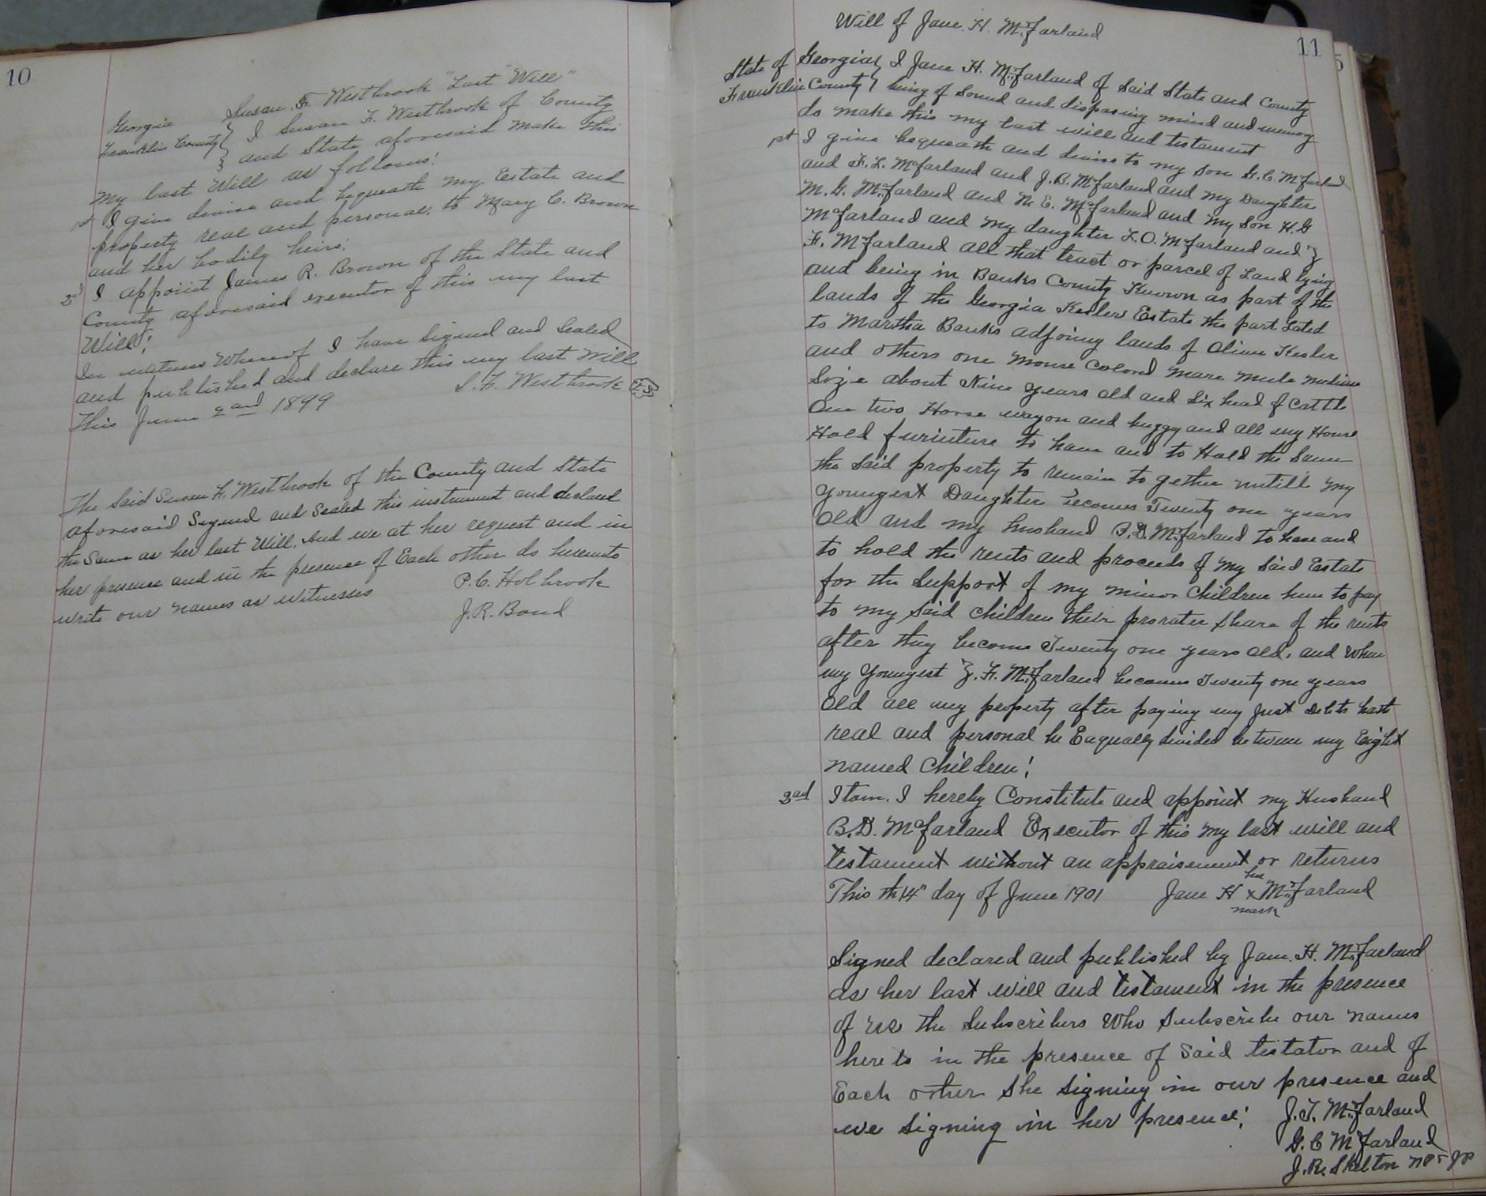 10
Susan F. Westbrook "Last Will"
Georgia } I Susan F. Westbrook of County
Franklin County } and State aforesaid make this
my last Will as follows:
I give devise and bequeath my Estate and
property real and personal, to Mary C. Brown
and her bodily heirs.
2d I appoint James R. Brown of the State and
County aforesaid executor of this my last
Will:
In witness Whereof I have signed and Sealed
and published and declare this my last Will
This June 2nd 1899 S. F. Westbrook L.S.
The Said Susan F. Westbrook of the County and State
aforesaid Signed and Sealed this instrument and declared
the Same as her last Will. And we at her request and in
her presence and in the presence of Each other do hereunto
write our names as witnesses P. C. Holbrook
J. R. Bond
Will of Jane. H. McFarland
11
State of Georgia } I Jane H. McFarland of Said State and County
Franklin County } being of Sound and disposing mind and memory
do make this my last will and testament
I give bequeath and devise to my Son G. C. McFarland
and F. L. McFarland and J. B. McFarland and my Daughter
M. G. McFarland and N. E. McFarland and my Son H. G
McFarland and my daughter L. O. McFarland and Z
F. McFarland all that tract or parcel of Land lying
and being in Banks County Known as part of the
lands of the Georgia Kesler Estate the part Loted
to Martha Banks adjoing lands of Oliver Kesler
and others one Mouse Colord Mare Mule medium
Size about Nine years old and Six head of Cattle
One two Horse wagon and buggy and all my House
Hold furinture to have and to Hold the Same
the Said property to remain to gether untill my
youngest Daughter becomes Twenty one years
Old and my husband B. D. McFarland to have and
to hold the rents and proceeds of my Said Estate
for the Support of my minor Children him to pay
to my Said Children their prorater Share of the rents
after they become Twenty one years old, and When
my youngest Z. F. McFarland becomes Twenty one years
Old all my peoperty after paying my just Debts both
real and personal be Eaqually divided between my Eight
named Children!
2ad Itam. I hereby Constitute and appoint my Husband
B. D. McFarland Executor of this my last will and
testament without an appraisement or returns
This th 14" day of June 1901 Jane H her x mark McFarland
Signed declared and published by Jane. H. McFarland
as her last will and testament in the presence
of us the Subscribers Who Subscribe our names
here to in the presence of Said testator and of
Each other She Signing in our presence and
we Signing in her presence: J. T. McFarland
G. C McFarland
J. R. Skelton NP & JP